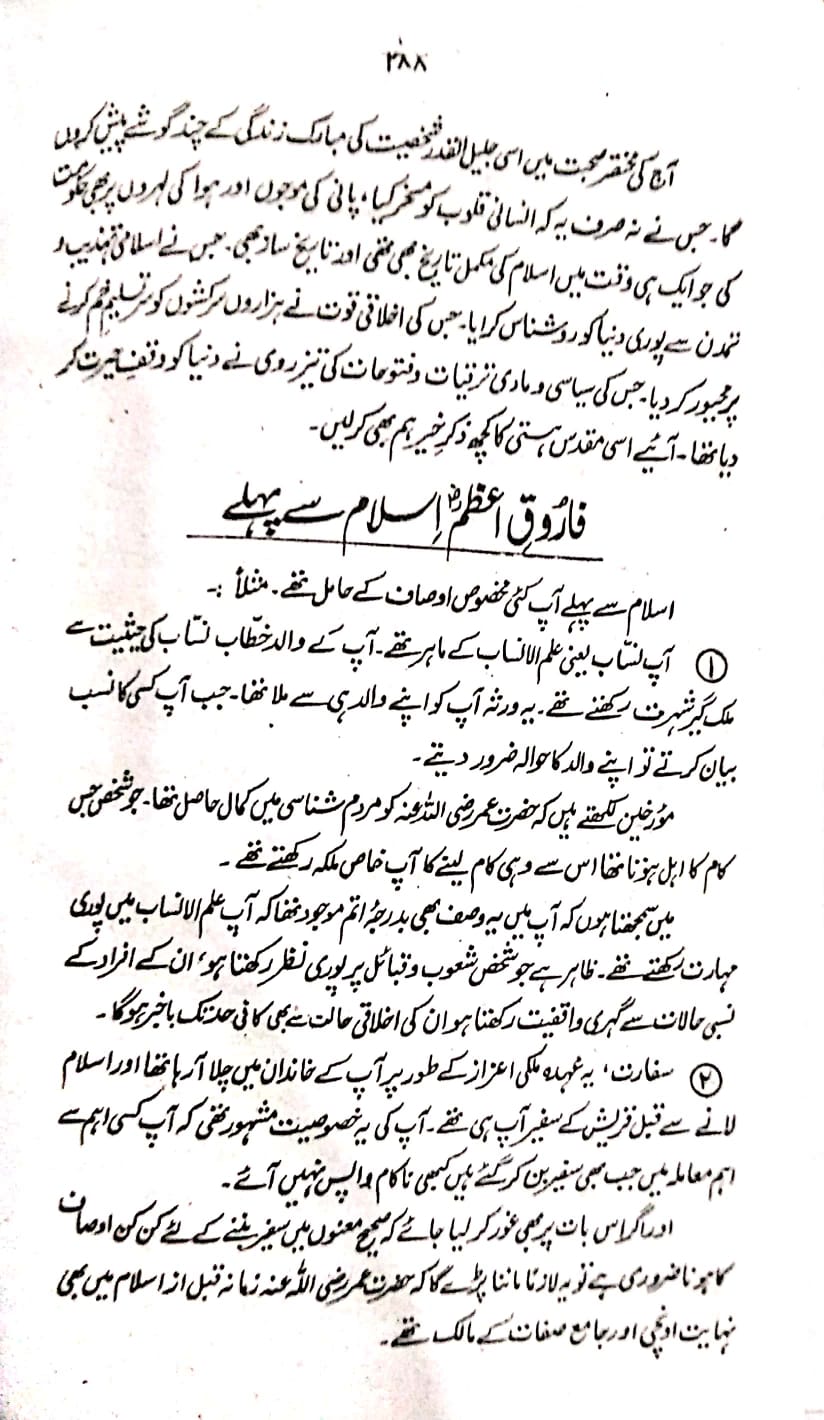 ۳۸۸
آج کی مختصر صحبت میں اسی جلیل القدر شخصیت کی مبارک زندگی کے چند گوشے پیش کروں
گا۔ جس نے نہ صرف یہ کہ انسانی قلوب کو مسخر کیا، پانی کی موجوں اور ہوا کی لہروں پر بھی حکومت
کی جو ایک ہی وقت میں اسلام کی مکمل تاریخ بھی تھی اور تاریخ ساز بھی۔ جس نے اسلامی تہذیب و
تمدن سے پوری دنیا کو روشناس کرایا۔ جس کی اخلاقی قوت نے ہزاروں سرکشوں کو سر تسلیم خم کرنے
پر مجبور کر دیا۔ جس کی سیاسی و مادی ترقیات و فتوحات کی تیز روی نے دنیا کو وقفِ حیرت کر
دیا تھا۔ آئیے اسی مقدس ہستی کا کچھ ذکرِ خیر ہم بھی کر لیں۔
فاروقِ اعظمؓ اِسلام سے پہلے
اسلام سے پہلے آپ کئی مخصوص اوصاف کے حامل تھے۔ مثلاً :۔
① آپ نسّاب یعنی علم الانساب کے ماہر تھے۔ آپ کے والد خطّاب نسّاب کی حیثیت سے
ملک گیر شہرت رکھتے تھے۔ یہ ورثہ آپ کو اپنے والد ہی سے ملا تھا۔ جب آپ کسی کا نسب
بیان کرتے تو اپنے والد کا حوالہ ضرور دیتے۔
مؤرخین لکھتے ہیں کہ حضرت عمر رضی اللہ عنہ کو مردم شناسی میں کمال حاصل تھا۔ جو شخص جس
کام کا اہل ہوتا تھا اس سے وہی کام لینے کا آپ خاص ملکہ رکھتے تھے۔
میں سمجھتا ہوں کہ آپ میں یہ وصف بھی بدرجۂ اتم موجود تھا کہ آپ علم الانساب میں پوری
مہارت رکھتے تھے۔ ظاہر ہے جو شخص شعوب و قبائل پر پوری نظر رکھتا ہو، ان کے افراد کے
نسبی حالات سے گہری واقفیت رکھتا ہو ان کی اخلاقی حالت سے بھی کافی حد تک باخبر ہوگا۔
② سفارت، یہ عہدہ ملکی اعزاز کے طور پر آپ کے خاندان میں چلا آرہا تھا اور اسلام
لانے سے قبل قریش کے سفیر آپ ہی تھے۔ آپ کی یہ خصوصیت مشہور تھی کہ آپ کسی اہم سے
اہم معاملہ میں جب بھی سفیر بن کر گئے ہیں کبھی ناکام واپس نہیں آئے۔
اور اگر اس بات پر بھی غور کر لیا جائے کہ صحیح معنوں میں سفیر بننے کے لئے کن کن اوصاف
کا ہونا ضروری ہے تو یہ لازمًا ماننا پڑے گا کہ حضرت عمر رضی اللہ عنہ زمانہ قبل از اسلام میں بھی
نہایت اونچی اور جامع صفات کے مالک تھے۔